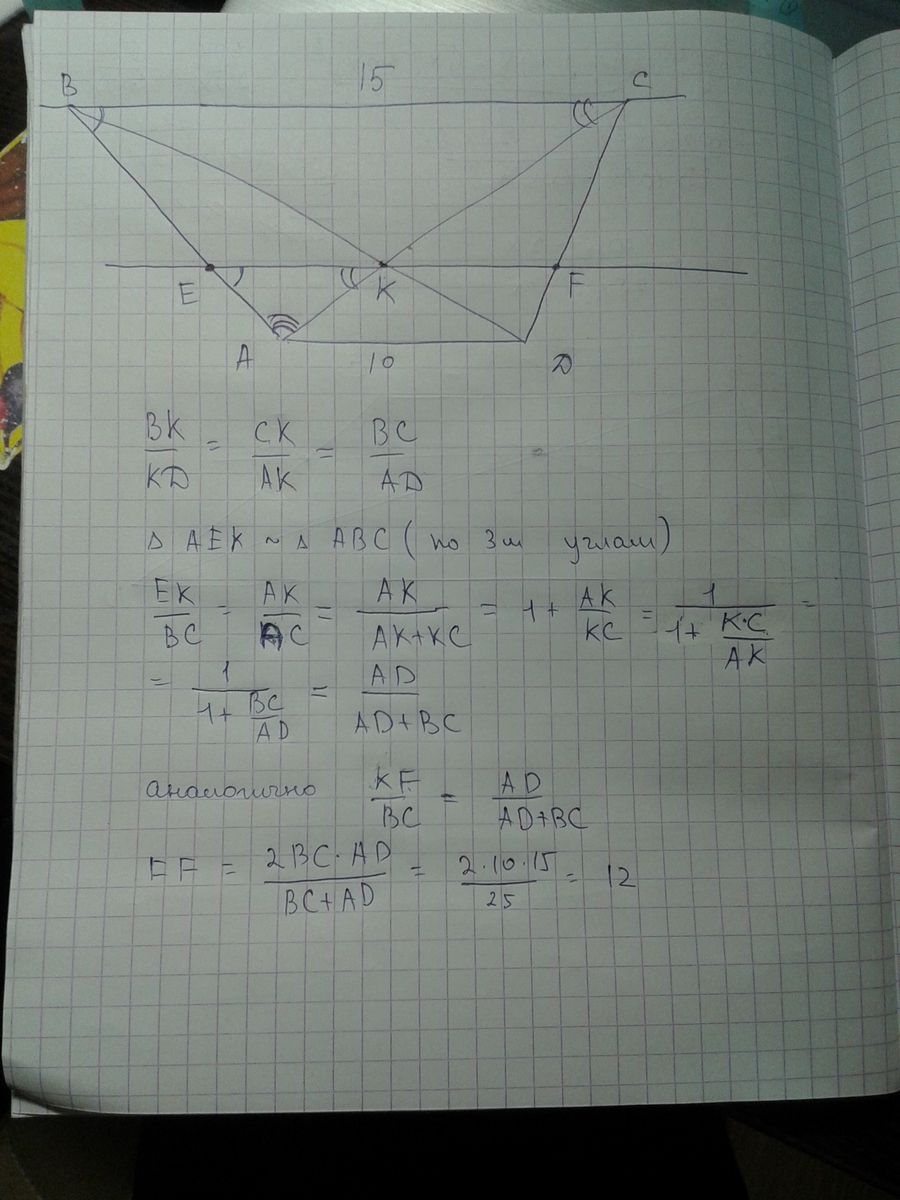 B 15 C
E K F
A 10 D
BK/KD = CK/AK = BC/AD =
Δ AEK ~ Δ ABC ( по 3м углам)
EK/BC = AK/AC = AK/(AK+KC) = 1 + AK/KC = 1/(1+ K·C/AK) =
= 1/(1+ BC/AD) = AD/(AD+BC)
аналогично KF/BC = AD/(AD+BC)
EF = 2BC·AD/(BC+AD) = 2·10·15/25 = 12